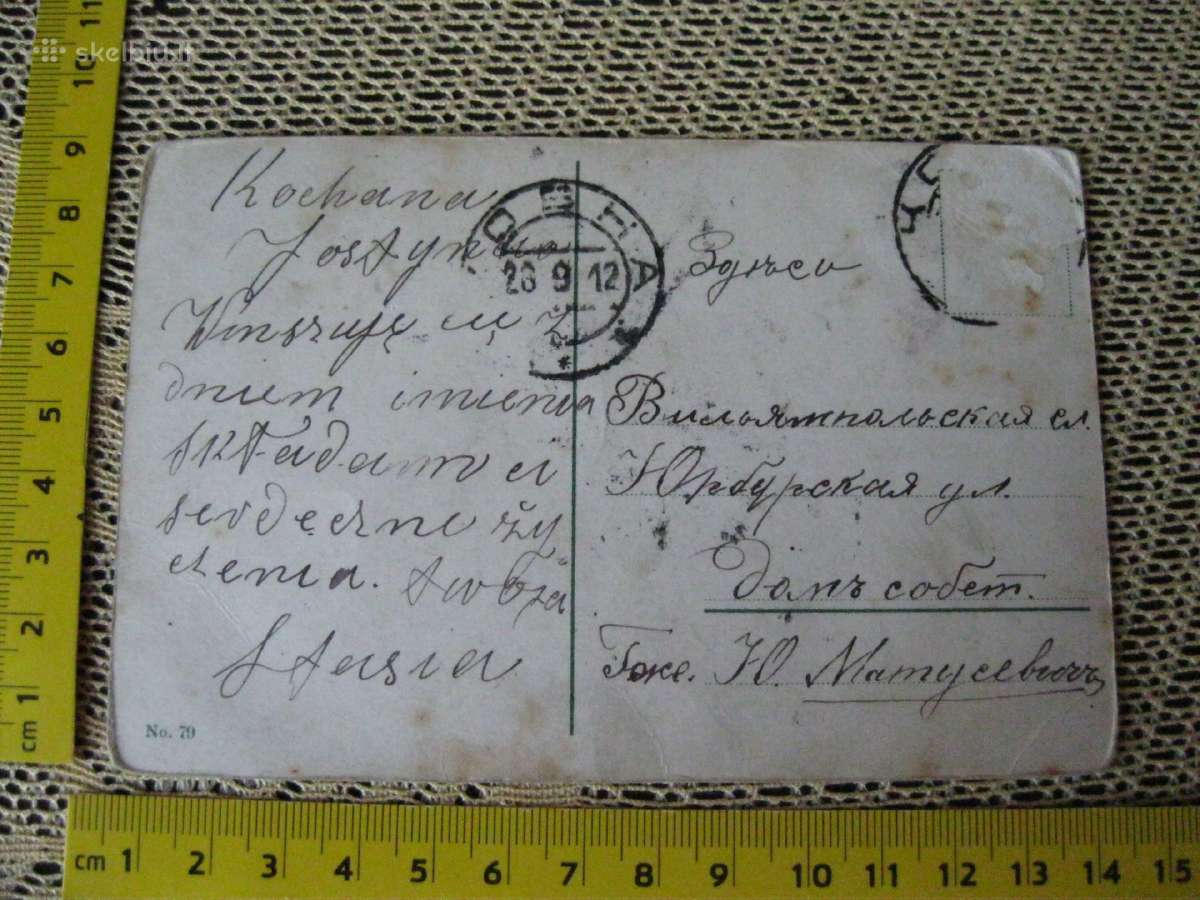 skelbiu.lt
Kochana
Jostyniu
Winszuję ci z
dniem imienia
składamo ci
serdeczne ży
czenia. twoja
Stasia
No. 79
ОВНА
28 9 12
Здѣсь
Вильямпольская сл.
Юрбурская ул.
Домъ собст.
Гже. Ю. Матусевичъ
cm 1 2 3 4 5 6 7 8 9 10 11
cm 1 2 3 4 5 6 7 8 9 10 11 12 13 14 15